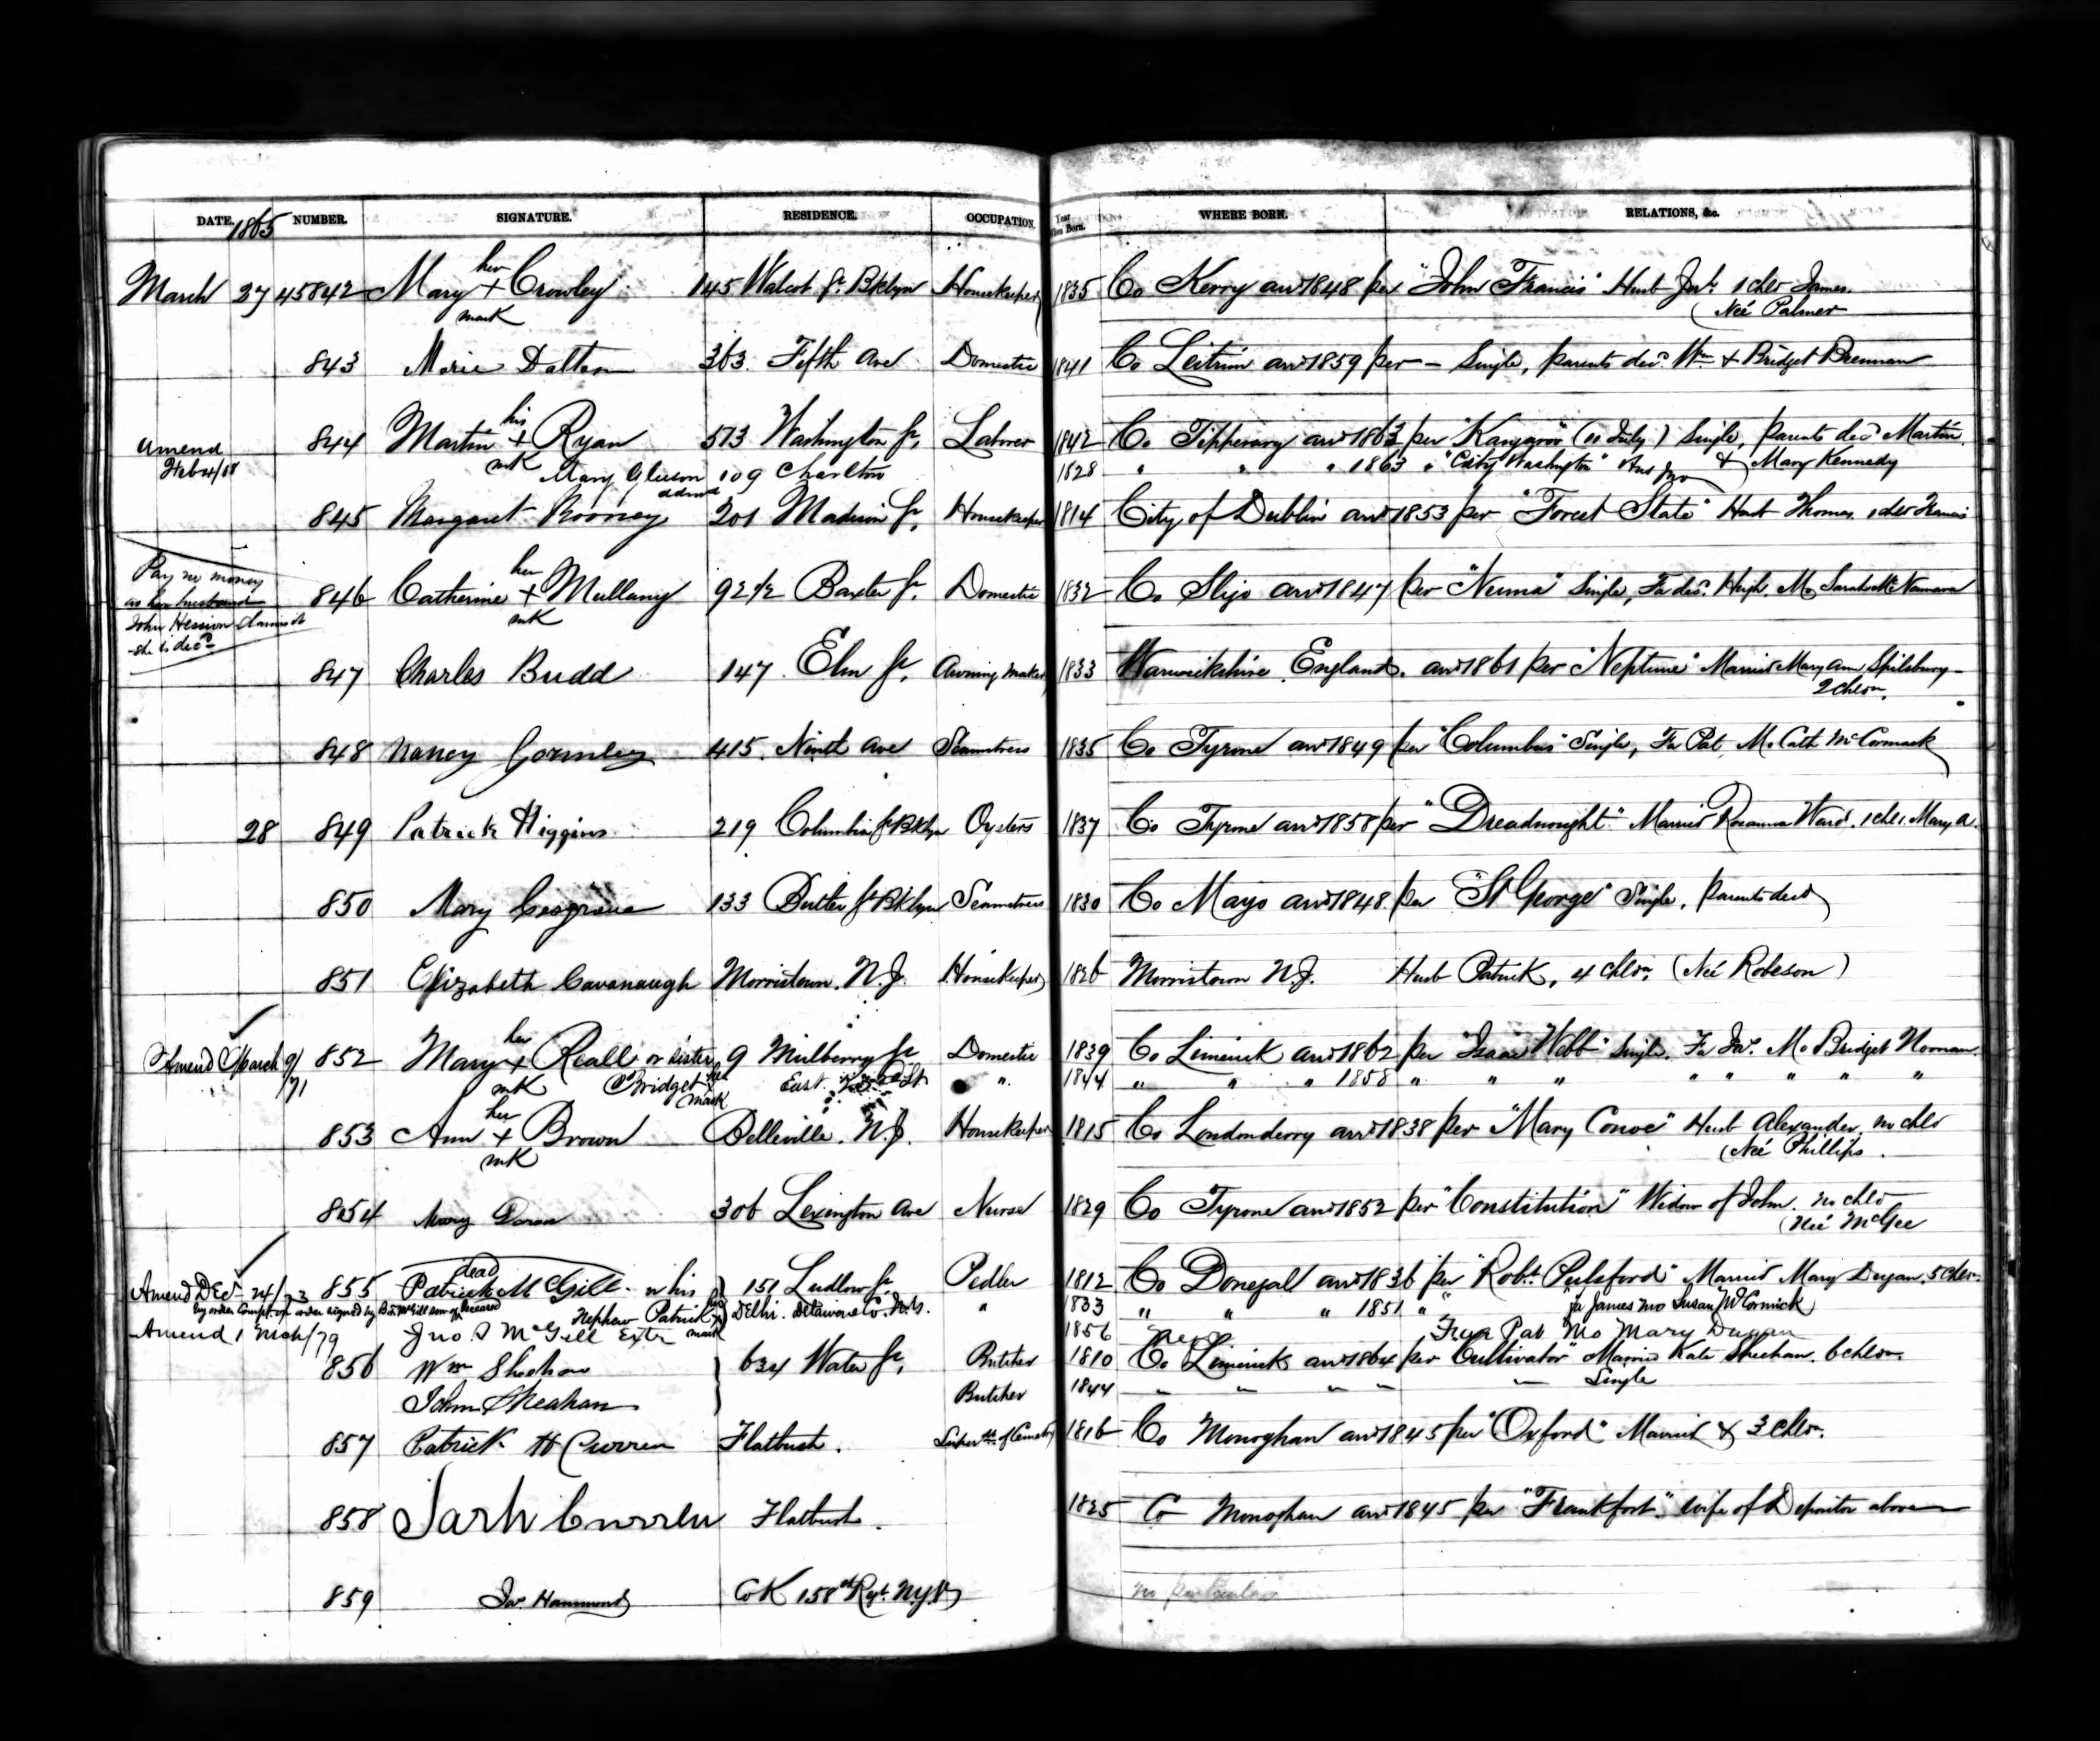 DATE. 1865 NUMBER. SIGNATURE. RESIDENCE. OCCUPATION. Year When Born. WHERE BORN. RELATIONS, &c.
March 27 45842 Mary her + Crowley 145 Walcot St. Bklyn Housekeeper 1835 Co Kerry arrd 1848 per "John Francis" Husb Jno. 1 chld James.
mark (Neé Palmer
843 Marie Dalton 363. Fifth Ave Domestic 1841 Co Leitrim arrd 1859 per — Single, parents decd. Wm & Bridget Brennan
Amend 844 Martin his + Ryan 573 Washington St, Laborer 1842 Co Tipperary arrd 1863 per "Kangaroo" (11 July) Single, parents decd Martin
Feb 24/68 mk Mary Gleeson 109 Charlton 1828 " " " 1863 " "City Washington" & Mary Kennedy
845 Margaret Rooney 201 Madison St, Housekeeper 1814 City of Dublin arrd 1853 per "Forest State" Husb Thomas. 1 chld Francis
Pay no money
as her husband
John Hession claims it
she is decd
846 Catherine her + Mullany 92 1/2 Baxter St. Domestic 1832 Co Sligo arrd 1847 per "Numa" Single, Fa decd. Hugh. Mo Sarah McNamara
mk
847 Charles Budd 147 Elm St, Awning Maker 1833 Warwickshire England. arrd 1861 per "Neptune" Married Mary Ann Spilsbury—
2 chldn.
848 Nancy Gormley 415. Ninth Ave Seamstress 1835 Co Tyrone arrd 1849 per "Columbus" Single, Fa Pat, Mo Cath McCormack
28 849 Patrick Higgins 219 Columbia St Bklyn Oysters 1837 Co Tyrone arrd 1858 per "Dreadnought" Married Rosanna Ward. 1 chld. Mary A.
850 Mary Cosgrove 133 Butler St Bklyn Seamstress 1830 Co Mayo arrd 1848 per "St George" Single, parents decd
851 Elizabeth Cavanaugh Morristown. N.J. Housekeeper 1826 Morristown N.J. Husb Patrick, 4 chldn. (Neé Robeson)
Amend March 9/71 852 Mary her + Reall or sister 9 Mulberry St Domestic 1839 Co Limerick arrd 1862 per "Isaac Webb" Single. Fa Jno. Mo Bridget Noonan.
mk Bridget her x mark East St " 1844 " " " 1858 " " " " " " " "
853 Ann her + Brown Belleville. N.J. Housekeeper 1815 Co Londonderry arrd 1838 per "Mary Conoe" Husb Alexander, no chld
mk (Neé Phillips.
854 Mary Doran 306 Lexington Ave Nurse 1829 Co Tyrone arrd 1852 per "Constitution" Widow of John. no chld
(Neé McGee
dead
Amend Dec 24/73 855 Patrick McGill. or his 151 Ludlow St Pedler 1812 Co Donegal arrd 1836 per "Robt. Pulsford" Married Mary Dugan, 5 chldn
Nephew Patrick her x mark Delhi. Delaware Co. N.Y. " 1833 " " " 1851 " " Fa James Mo Susan McCormick
Amend 1 Mch/79 Jno S McGill Extr 1856 Fa Pat Mo Mary Dugan
856 Wm Sheehan 634 Water St, Butcher 1810 Co Limerick arrd 1864 per "Cultivator" Married Kate Sheehan. 6 chldn.
John Sheahan Butcher 1844 " " " " " Single
857 Patrick H Curren Flatbush. Supertt. of Cemetry 1816 Co Monoghan arrd 1845 per "Oxford" Married & 3 chldn.
858 Sarh Curren Flatbush. 1825 Co Monoghan arrd 1845 per "Frankfort". wife of Depositor above
859 Jas. Hammond Co K 158th Regt. N.Y.V. no particulars